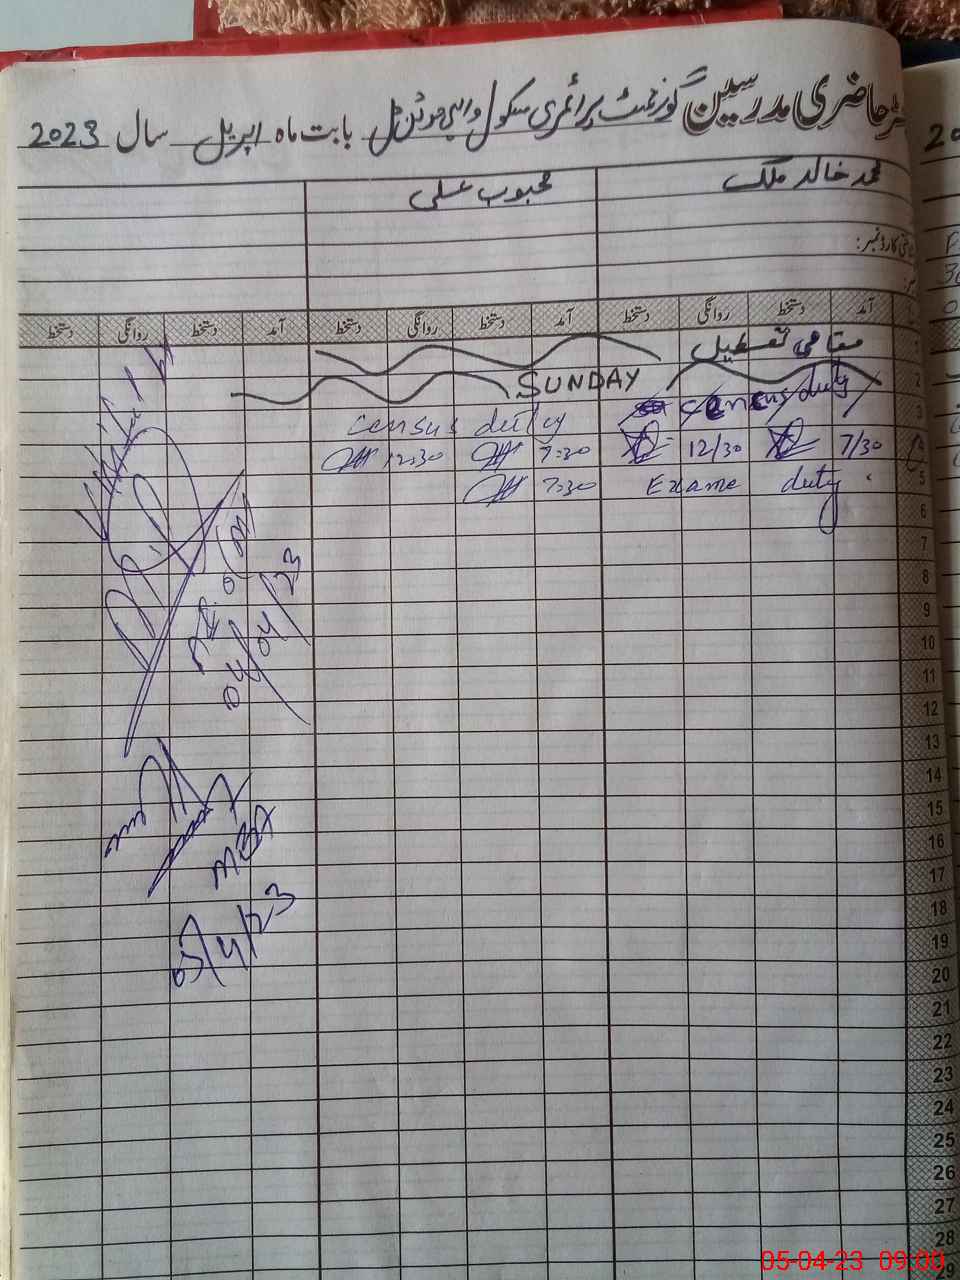 حاضری مدرسین گورنمنٹ پرائمری سکول بابت ماہ اپریل سال 2023
محمد خالد ملک محبوب علی
کارڈ نمبر:
آمد دستخط روانگی دستخط آمد دستخط روانگی دستخط آمد دستخط روانگی دستخط
1 مقامی تعطیل
2 SUNDAY
3 census duty census duty
4 7/30 12/30 7:30 12:30
5 Exame duty 7:30
6
7
8
9
10
11
12
13
14
15
16
17
18
19
20
21
22
23
24
25
26
27
28
29
Visited
04/04/23
MEA
05/4/23
05-04-23 09:00